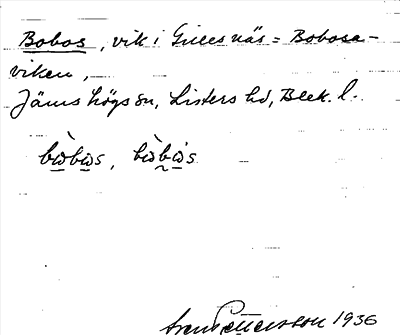 Bobos, vik i Gillesnäs = Bobosa-
viken,
Jämshögs sn, Listers hd, Blek. l.
bὼbωs, bὼbω´s
Sven Pettersson 1936